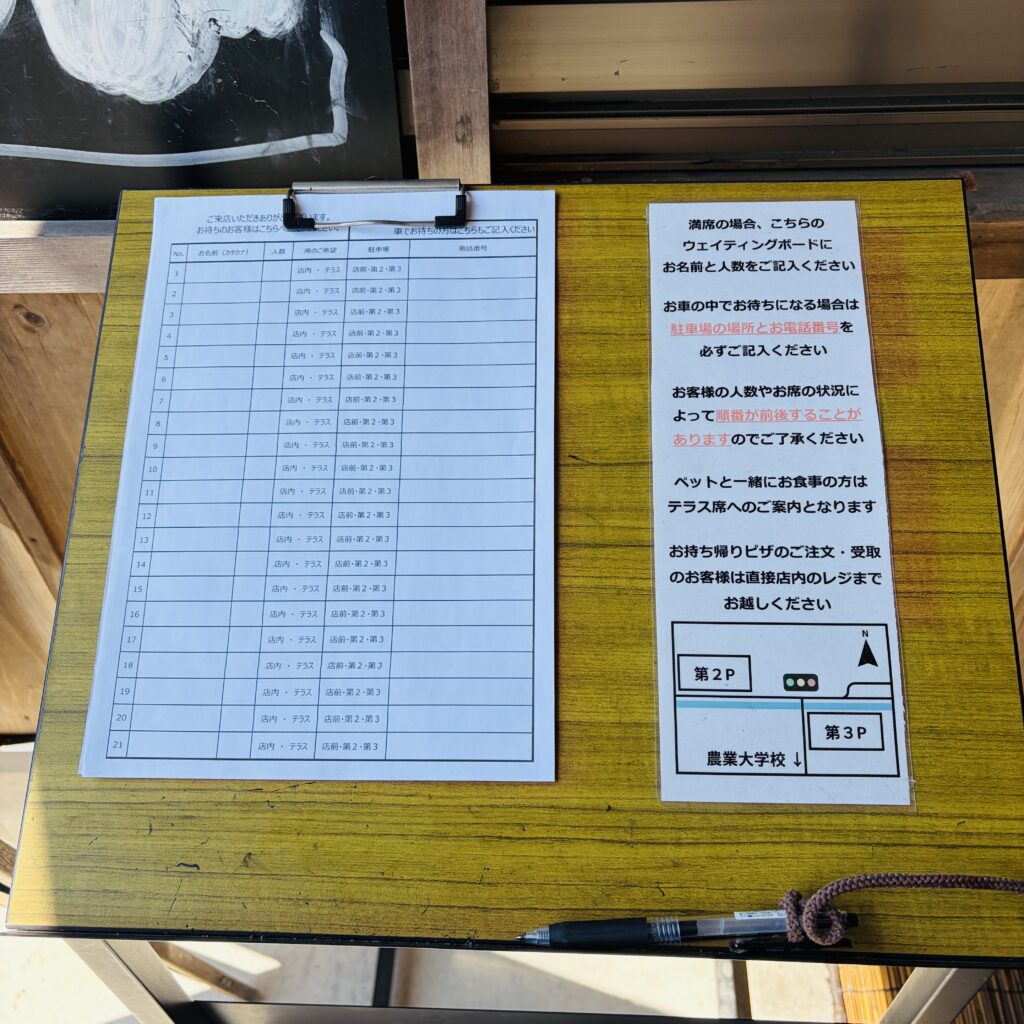 ご来店いただきありが います。
お待ちのお客様はこちらへ ださい。
車でお待ちの方はこちらもご記入ください
No. お名前（カタカナ） 人数 席のご希望 駐車場 電話番号
1 店内 ・ テラス 店前・第２・第３
2 店内 ・ テラス 店前・第２・第３
3 店内 ・ テラス 店前・第２・第３
4 店内 ・ テラス 店前・第２・第３
5 店内 ・ テラス 店前・第２・第３
6 店内 ・ テラス 店前・第２・第３
7 店内 ・ テラス 店前・第２・第３
8 店内 ・ テラス 店前・第２・第３
9 店内 ・ テラス 店前・第２・第３
10 店内 ・ テラス 店前・第２・第３
11 店内 ・ テラス 店前・第２・第３
12 店内 ・ テラス 店前・第２・第３
13 店内 ・ テラス 店前・第２・第３
14 店内 ・ テラス 店前・第２・第３
15 店内 ・ テラス 店前・第２・第３
16 店内 ・ テラス 店前・第２・第３
17 店内 ・ テラス 店前・第２・第３
18 店内 ・ テラス 店前・第２・第３
19 店内 ・ テラス 店前・第２・第３
20 店内 ・ テラス 店前・第２・第３
21 店内 ・ テラス 店前・第２・第３
満席の場合、こちらの
ウェイティングボードに
お名前と人数をご記入ください
お車の中でお待ちになる場合は
駐車場の場所とお電話番号を
必ずご記入ください
お客様の人数やお席の状況に
よって順番が前後することが
ありますのでご了承ください
ペットと一緒にお食事の方は
テラス席へのご案内となります
お持ち帰りピザのご注文・受取
のお客様は直接店内のレジまで
お越しください
N
第２P
第３P
農業大学校 ↓